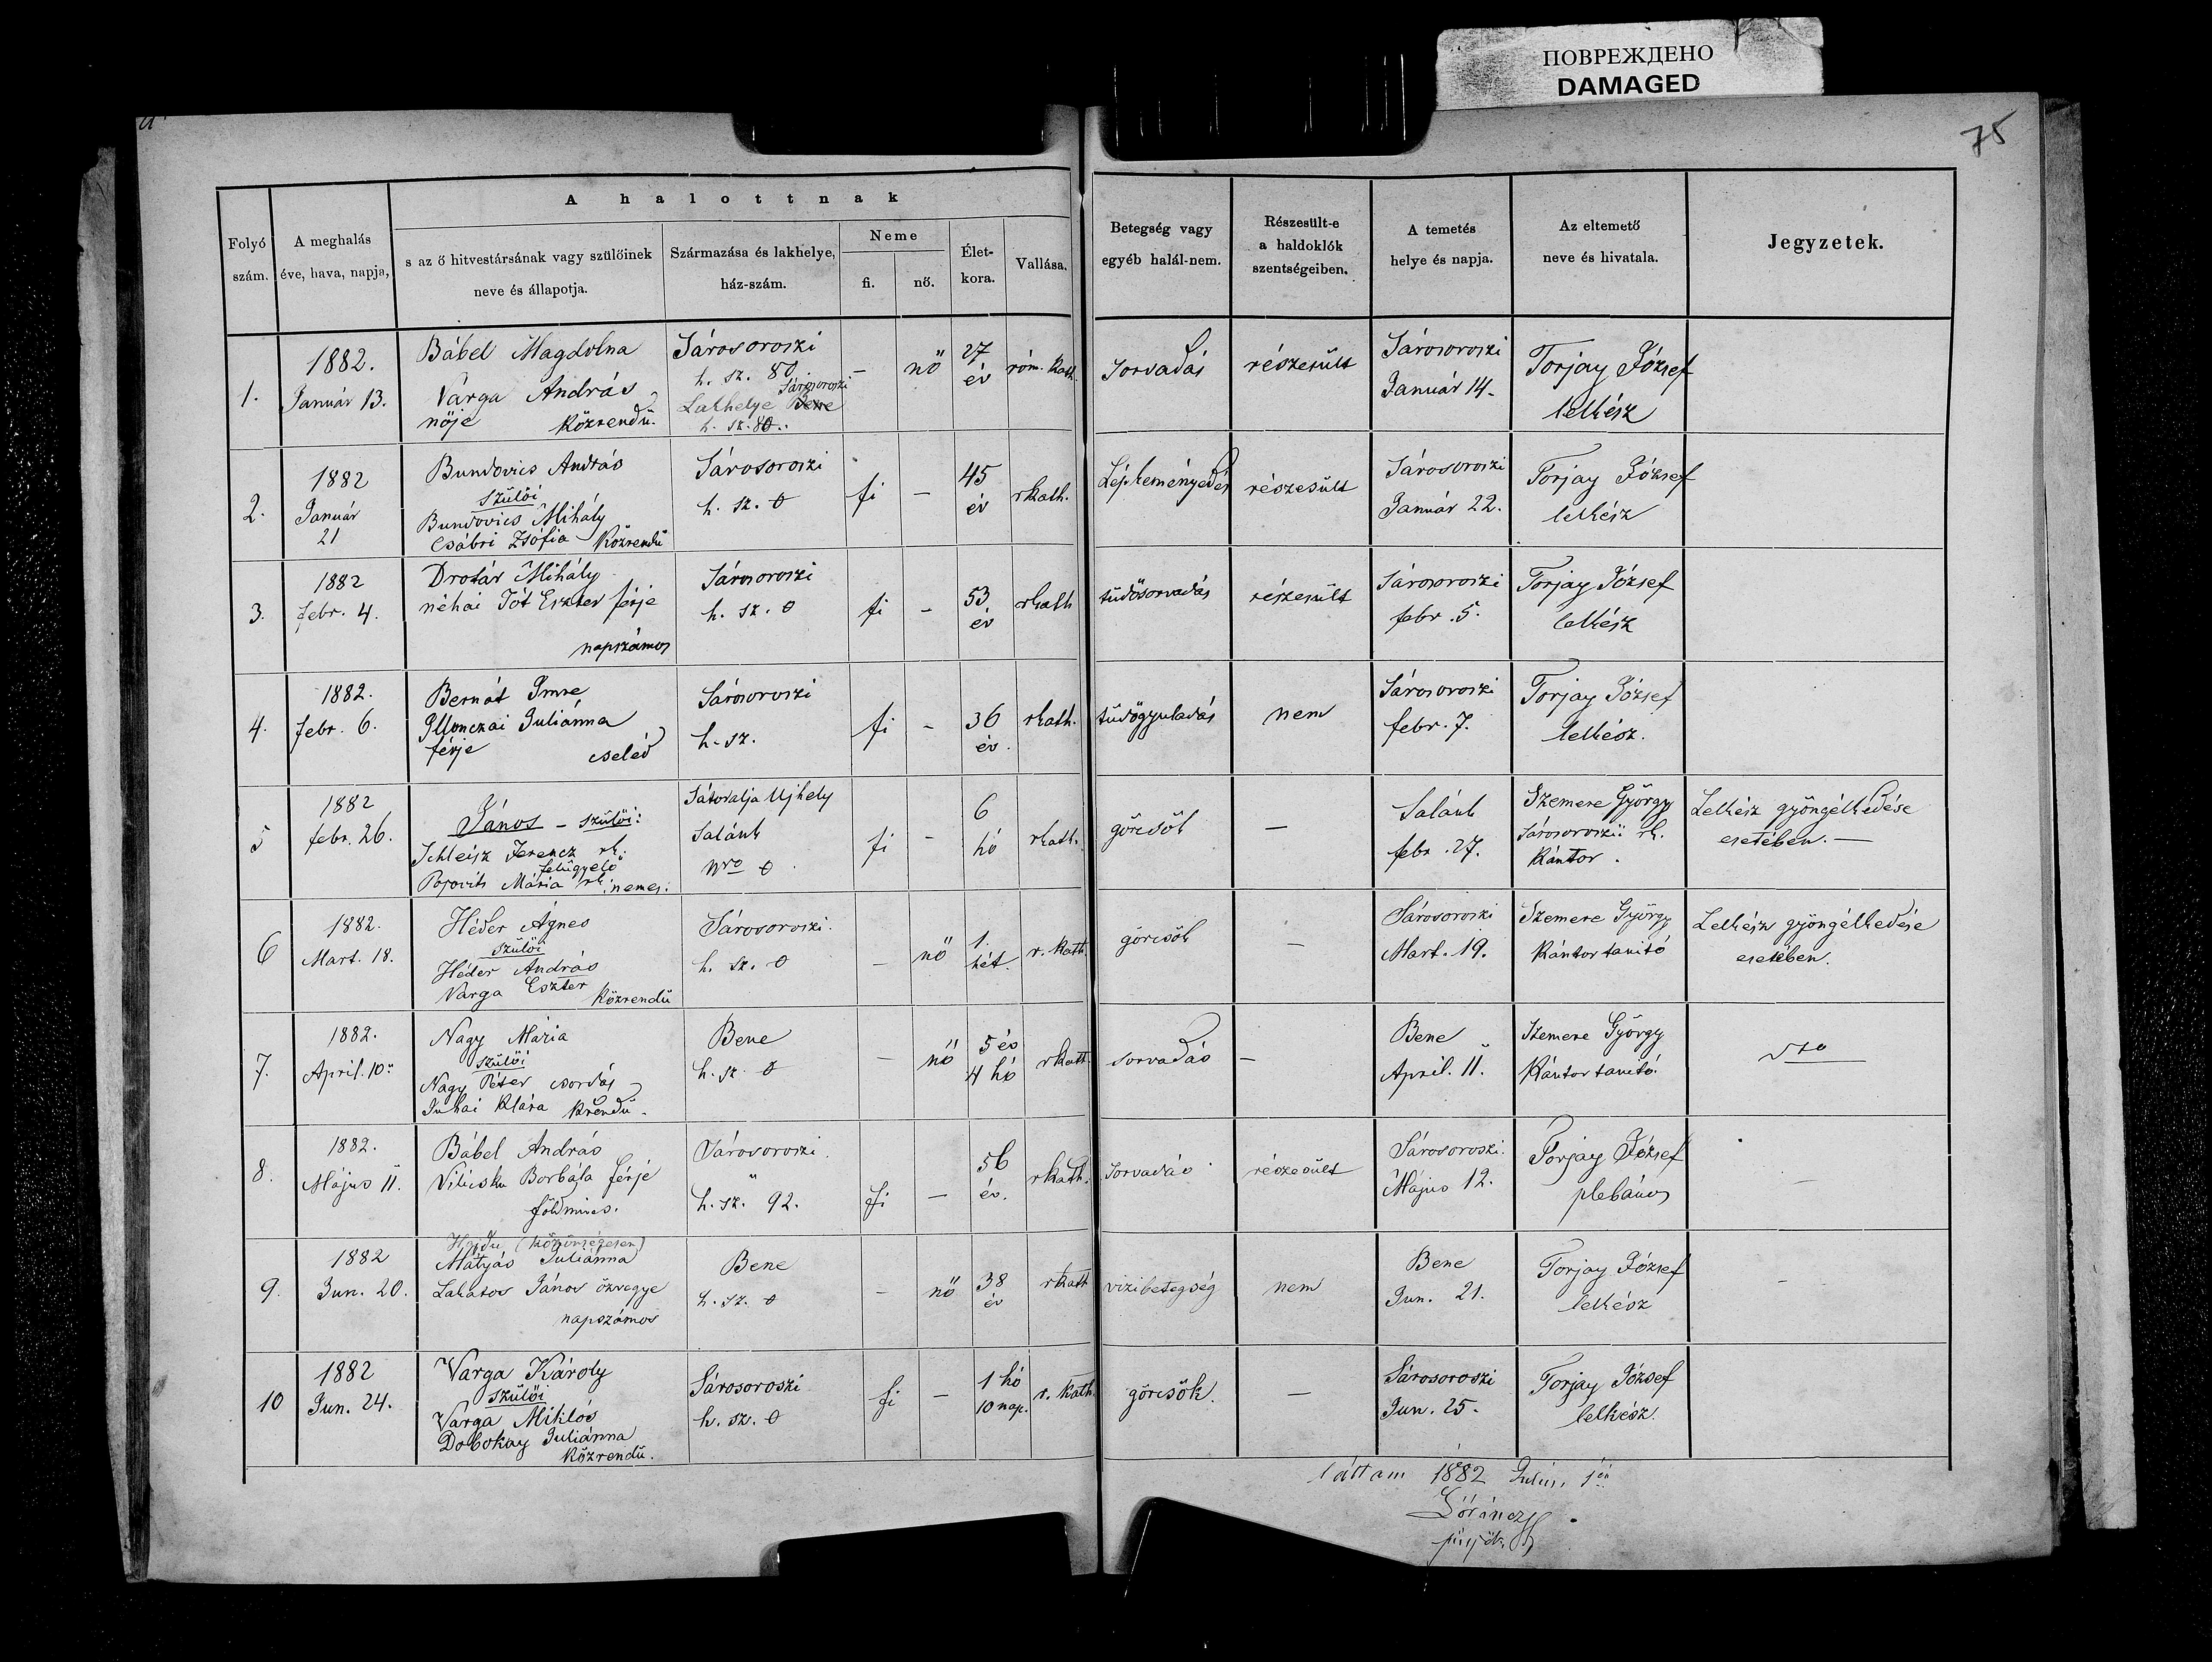 ПОВРЕЖДЕНО
DAMAGED
75
A halottnak
Folyó
szám.
A meghalás
éve, hava, napja,
s az ő hitvestársának vagy szülőinek
neve és állapotja.
Származása és lakhelye,
ház-szám.
Neme
fi.
nő.
Élet-
kora.
Vallása.
Betegség vagy
egyéb halál-nem.
Részesült-e
a haldoklók
szentségeiben.
A temetés
helye és napja.
Az eltemető
neve és hivatala.
Jegyzetek.
1.
1882.
Január 13.
Bábel Magdolna
Varga András
nője közrendü.
Sárosoroszi
h. sz. 80
Sárosoroszi
Lakhelye Bene
h. sz. 80.
–
nő
27
év
róm. kath.
sorvadás
részesült
Sárosoroszi
Január 14.
Torjay József
lelkész
2.
1882
Január
21
Bundovics András
szülöi
Bundovics Mihály
Csábri Zsófia közrendü
Sárosoroszi
h. sz. 0
fi
–
45
év
rkath.
részesült
Sárosoroszi
Január 22.
Torjay József
lelkész
3.
1882
febr. 4.
Drotár Mihály
néhai Tót Eszter férje
napszámos
Sárosoroszi
h. sz. 0
fi
–
53
év
rkath
tüdősorvadás
részesült
Sárosoroszi
febr. 5.
Torjay József
lelkész
4.
1882.
febr. 6.
Bernát Imre
Illonczai Juliánna
férje cseléd
Sárosoroszi
h. sz.
fi
–
36
év.
rkath.
tüdőgyuladás
nem
Sárosoroszi
febr. 7.
Torjay József
lelkész.
5
1882
febr. 26.
János – szülöi:
Schleisz Ferencz rk.
felügyelő
Popovits Mária rk. nemes.
Sátoralja Ujhely
Salánk
Nro 0
fi
–
6
hó
rkath.
görcsök
–
Salánk
febr. 27.
Szemere György
Sárosoroszii rk.
Kántor.
Lelkész gyöngélkedése
esetében. –
6
1882.
Mart. 18.
Héder Ágnes
szülöi
Héder András
Varga Eszter
közrendü
Sárosoroszi.
h. sz. 0
–
nő
1.
hét.
r. kath.
görcsök
–
Sárosoroszi
Mart. 19.
Szemere György
Kántor tanító
Lelkész gyöngélkedése
esetében.
7.
1882.
April. 10.
Nagy Mária
szülöi
Nagy Péter csordás
Juhai Klára krendü.
Bene
h. sz. 0
–
nő
5 év
4 hó
rkath.
sorvadás
–
Bene
April. 11.
Szemere György
Kántor tanító.
8.
1882.
Május 11.
Bábel András
Borbála férje
földmives.
Sárosoroszi.
h. sz. 92.
fi
–
56
év.
rkath.
sorvadás
részesült
Sárosoroszi.
Május 12.
Torjay József
plebános
–
9.
1882
Jun. 20.
Hajdu (közönségesen)
Mátyás Juliánna
Lakatos János özvegye
napszámos
Bene
h. sz. 0
–
nő
38
év
rkath
vizibetegség
nem
Bene
Jun. 21.
Torjay József
lelkész
–
10
1882
Jun. 24.
Varga Károly
szülöi
Varga Miklós
Dobokay Juliánna
közrendü.
Sárosoroszi
h. sz. 0
fi
–
1 hó
10 nap.
r. kath.
görcsök.
–
Sárosoroszi
Jun. 25.
Torjay József
lelkész.
láttam 1882 Julius 1én